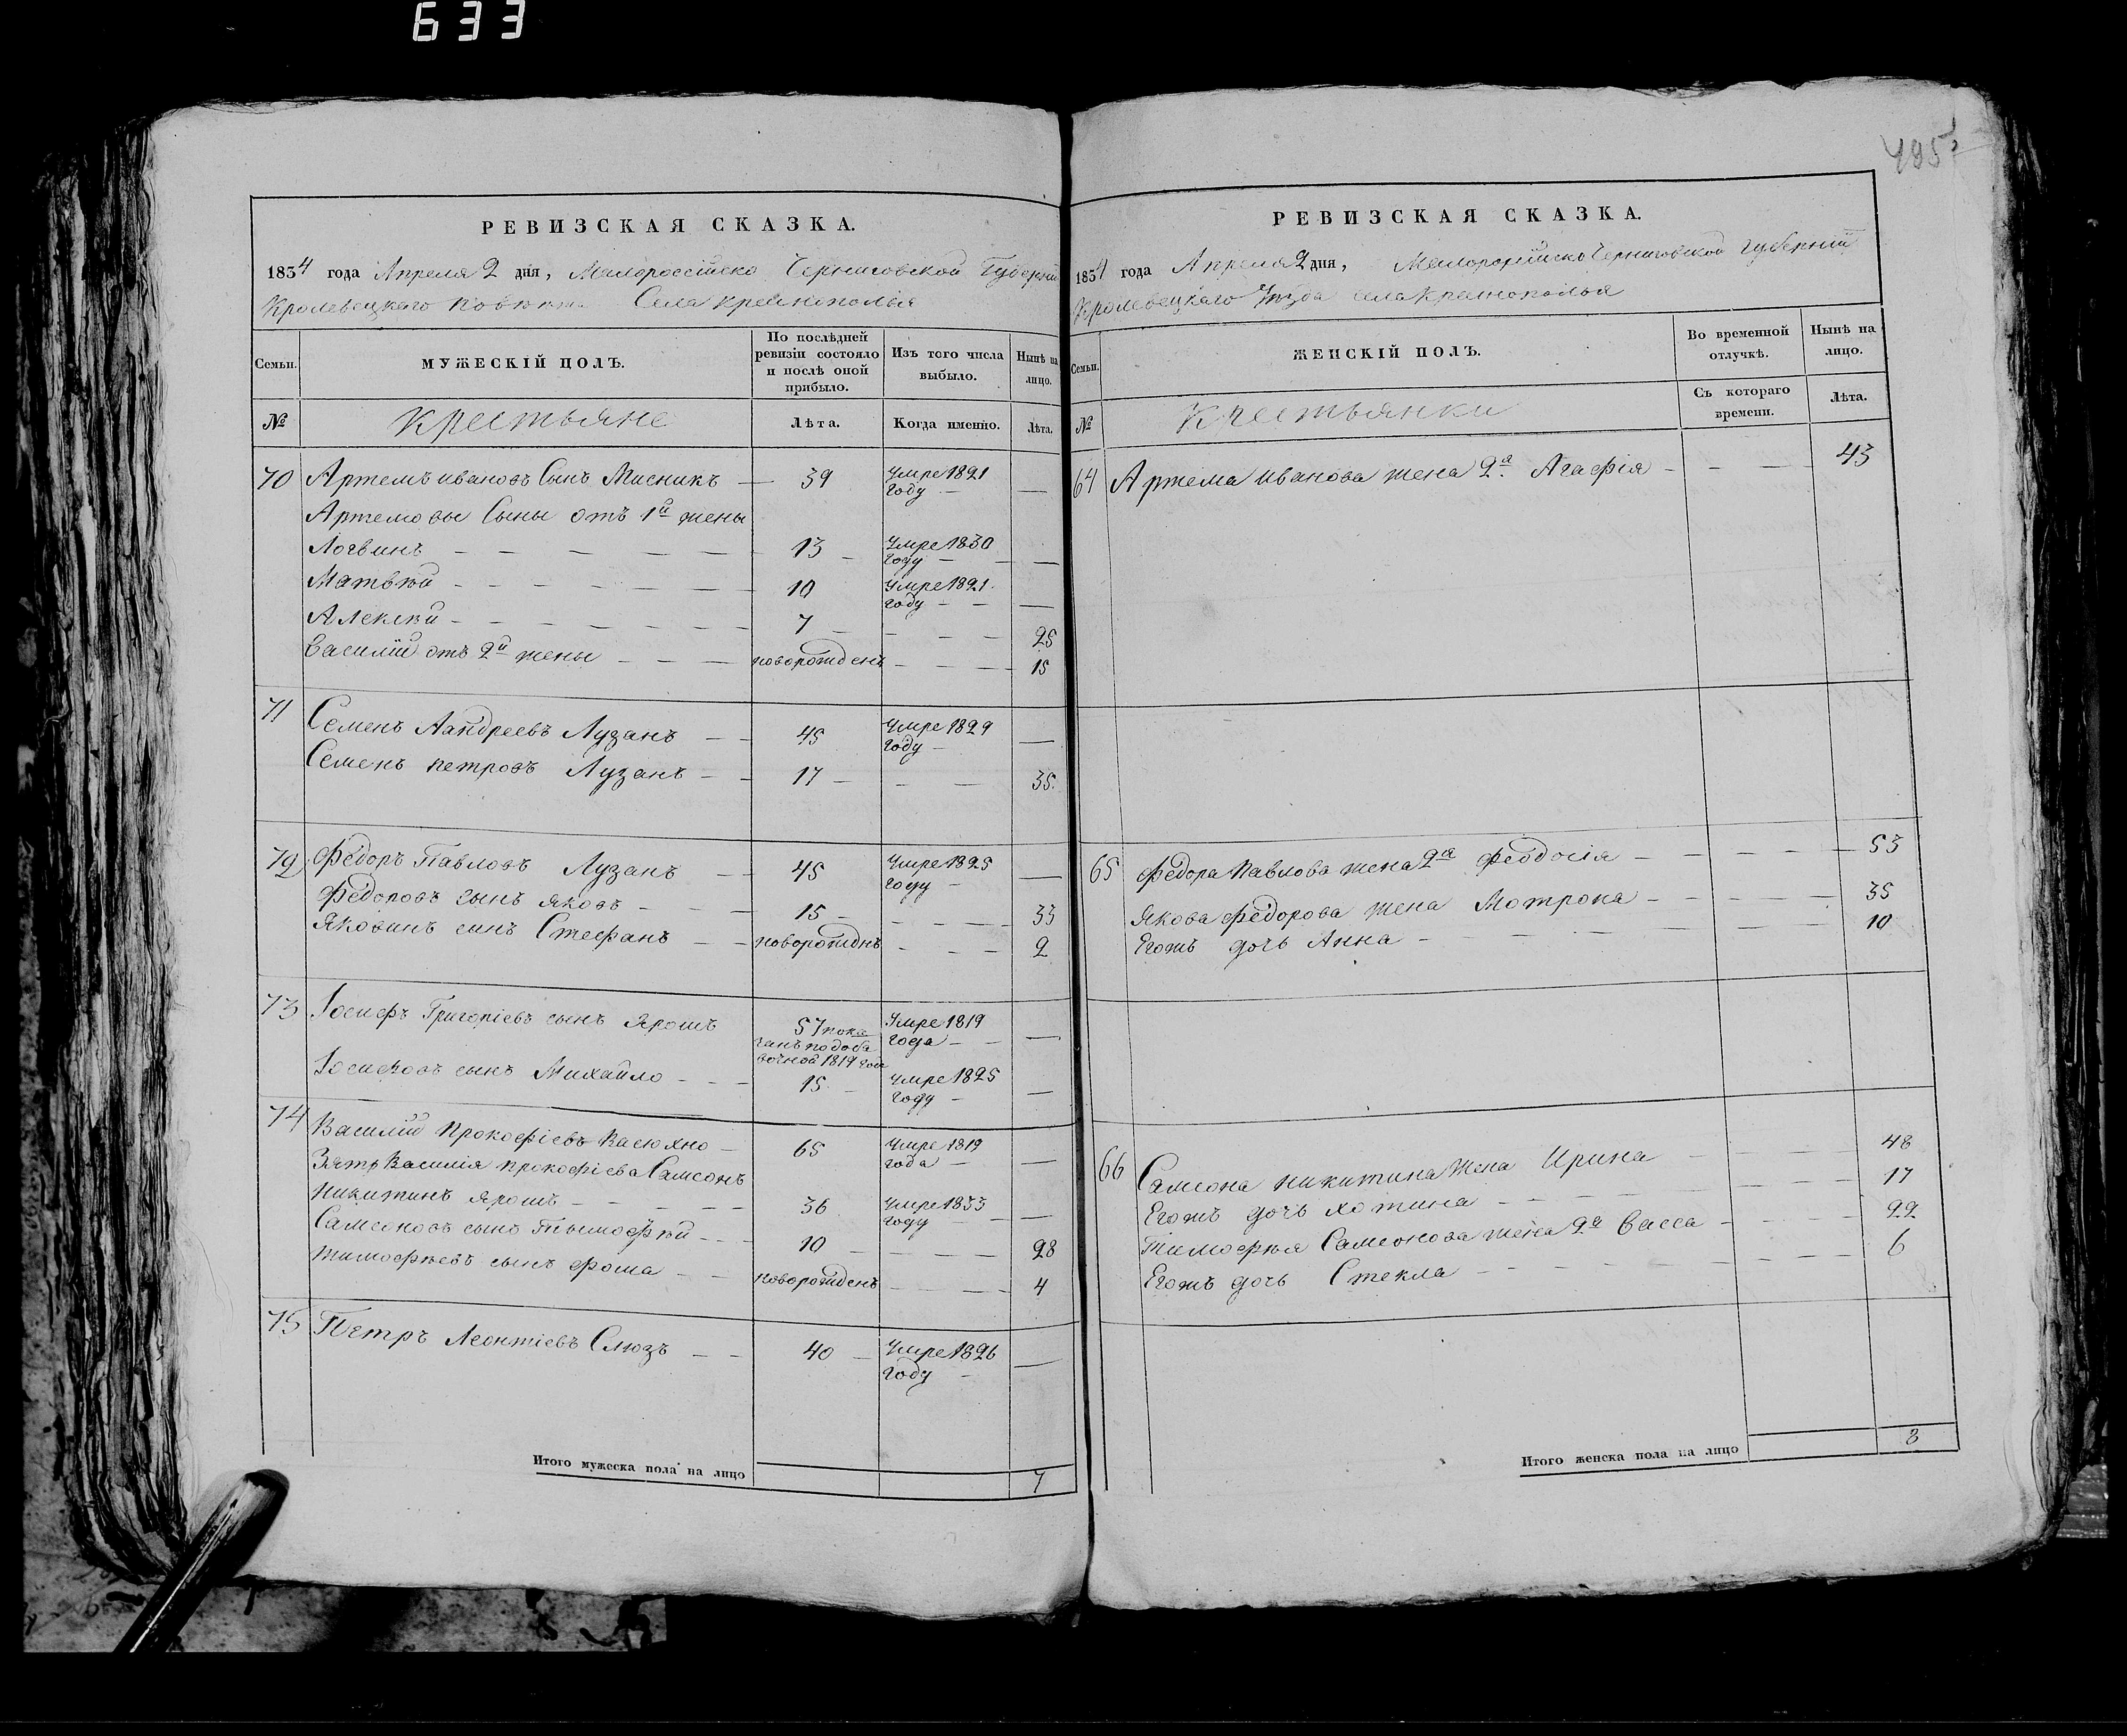 633
495
РЕВИЗСКАЯ СКАЗКА.
1834 года Апреля 2 дня, Малороссійско Черниговской Губерніи
Кролевецкаго Села
Семьи.
МУЖЕСКІЙ ПОЛЪ.
По послѣдней ревизіи состояло и послѣ оной прибыло.
Изъ того числа выбыло.
Нынѣ на лицо.
№
Крестьяне
Лѣта.
Когда именно.
Лѣта.
70 Артемъ ивановъ Сынъ Мисникъ — 39 Умре 1821 году — —
Артемовы Сыны отъ 1й жены
Логвинъ — 13 — Умре 1830 году — —
Матвѣй — 10 Умре 1821 году — —
Алексѣй — 7 — 25
Василій отъ 2й жены — новорожденъ — 15
71 Семенъ Аандреевъ Лузанъ — 45 Умре 1829 году — —
Семенъ петровъ Лузанъ — 17 — 35
72 Федоръ Павловъ Лузанъ — 45 Умре 1825 году — —
Федоровъ сынъ яковъ — 15 — 33
Яковинъ синъ Стефанъ — новорожднъ — 2
73 Іосифъ Григоріевъ сынъ Ярошъ 57 пока
занъ по доба
вочной 1819 года Умре 1819 года — —
Іосифовъ сынъ Михайло — 15 — Умре 1825 году — —
74 Василій Прокофіевъ Васюхно — 65 Умре 1819 года — —
Зять Василія прокофіева Самсонъ
Никитинъ ярошъ — 36 Умре 1833 году — —
Самсоновъ сынъ Тымофѣй — 10 — 28
Тимофѣевъ сынъ фома — новорожденъ — 4
75 Петръ Леонтіевъ Слюзъ — 40 — Умре 1826 году — —
Итого мужеска пола на лицо 7
РЕВИЗСКАЯ СКАЗКА.
1834 года Апреля 2 дня, Малоросійско Черниговской губерніи
Кролевецкаго села
Семьи.
ЖЕНСКІЙ ПОЛЪ.
Во временной отлучкѣ.
Нынѣ на лицо.
№
Крестьянки
Съ котораго времени.
Лѣта.
64 Артема иванова жена 2я Агафія — 43
65 Федора Павлова жена 2я Феодосія — 53
Якова федорова жена Мотрона — 35
Егожъ дочь Анна — 10
66 Самсона никитина жена Ирина — 48
Егожъ дочь хотина — 17
Тимофѣя Самсонова жена 2я Васса — 22
Егожъ дочь Стекла — 6
Итого женска пола на лицо 8